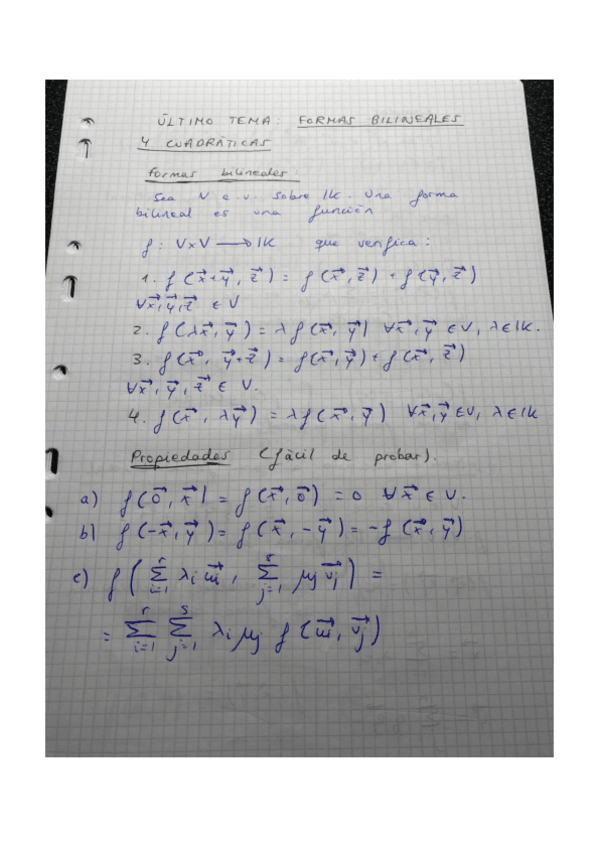 ÚLTIMO TEMA: FORMAS BILINEALES
Y CUADRÁTICAS
formas bilineales:
Sea V e.v. sobre IK. Una forma
bilineal es una función
f: VxV → IK que verifica:
1. f(x⃗+y⃗, z⃗) = f(x⃗, z⃗) + f(y⃗, z⃗)
∀x⃗,y⃗,z⃗ ∈ V
2. f(λx⃗, y⃗) = λ f(x⃗, y⃗) ∀x⃗,y⃗ ∈ V, λ ∈ IK.
3. f(x⃗, y⃗+z⃗) = f(x⃗,y⃗) + f(x⃗, z⃗)
∀x⃗, y⃗, z⃗ ∈ V.
4. f(x⃗, λy⃗) = λf(x⃗, y⃗) ∀x⃗,y⃗ ∈ V, λ ∈ IK
Propiedades (fácil de probar).
a) f(0⃗, x⃗) = f(x⃗, 0⃗) = 0 ∀x⃗ ∈ V.
b) f(-x⃗, y⃗) = f(x⃗, -y⃗) = -f(x⃗, y⃗)
c) f(∑_{i=1}^{r} λi u⃗i, ∑_{j=1}^{s} μj v⃗j) =
= ∑_{i=1}^{r} ∑_{j=1}^{s} λi μj f(u⃗i, v⃗j)